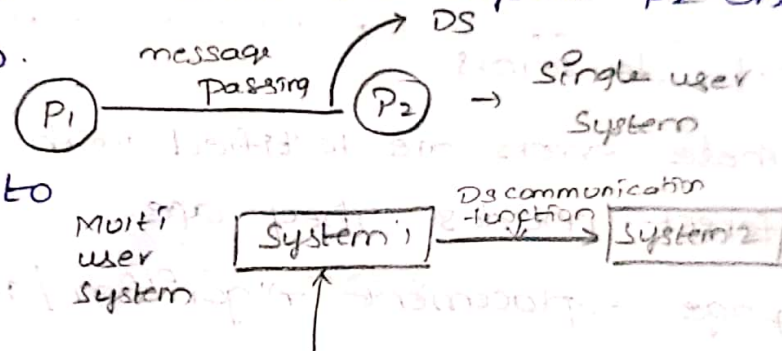 DS
message
passing
P1
P2
→ Single user
System
to
Multi
user
System
System 1
DS communication
function
System 2